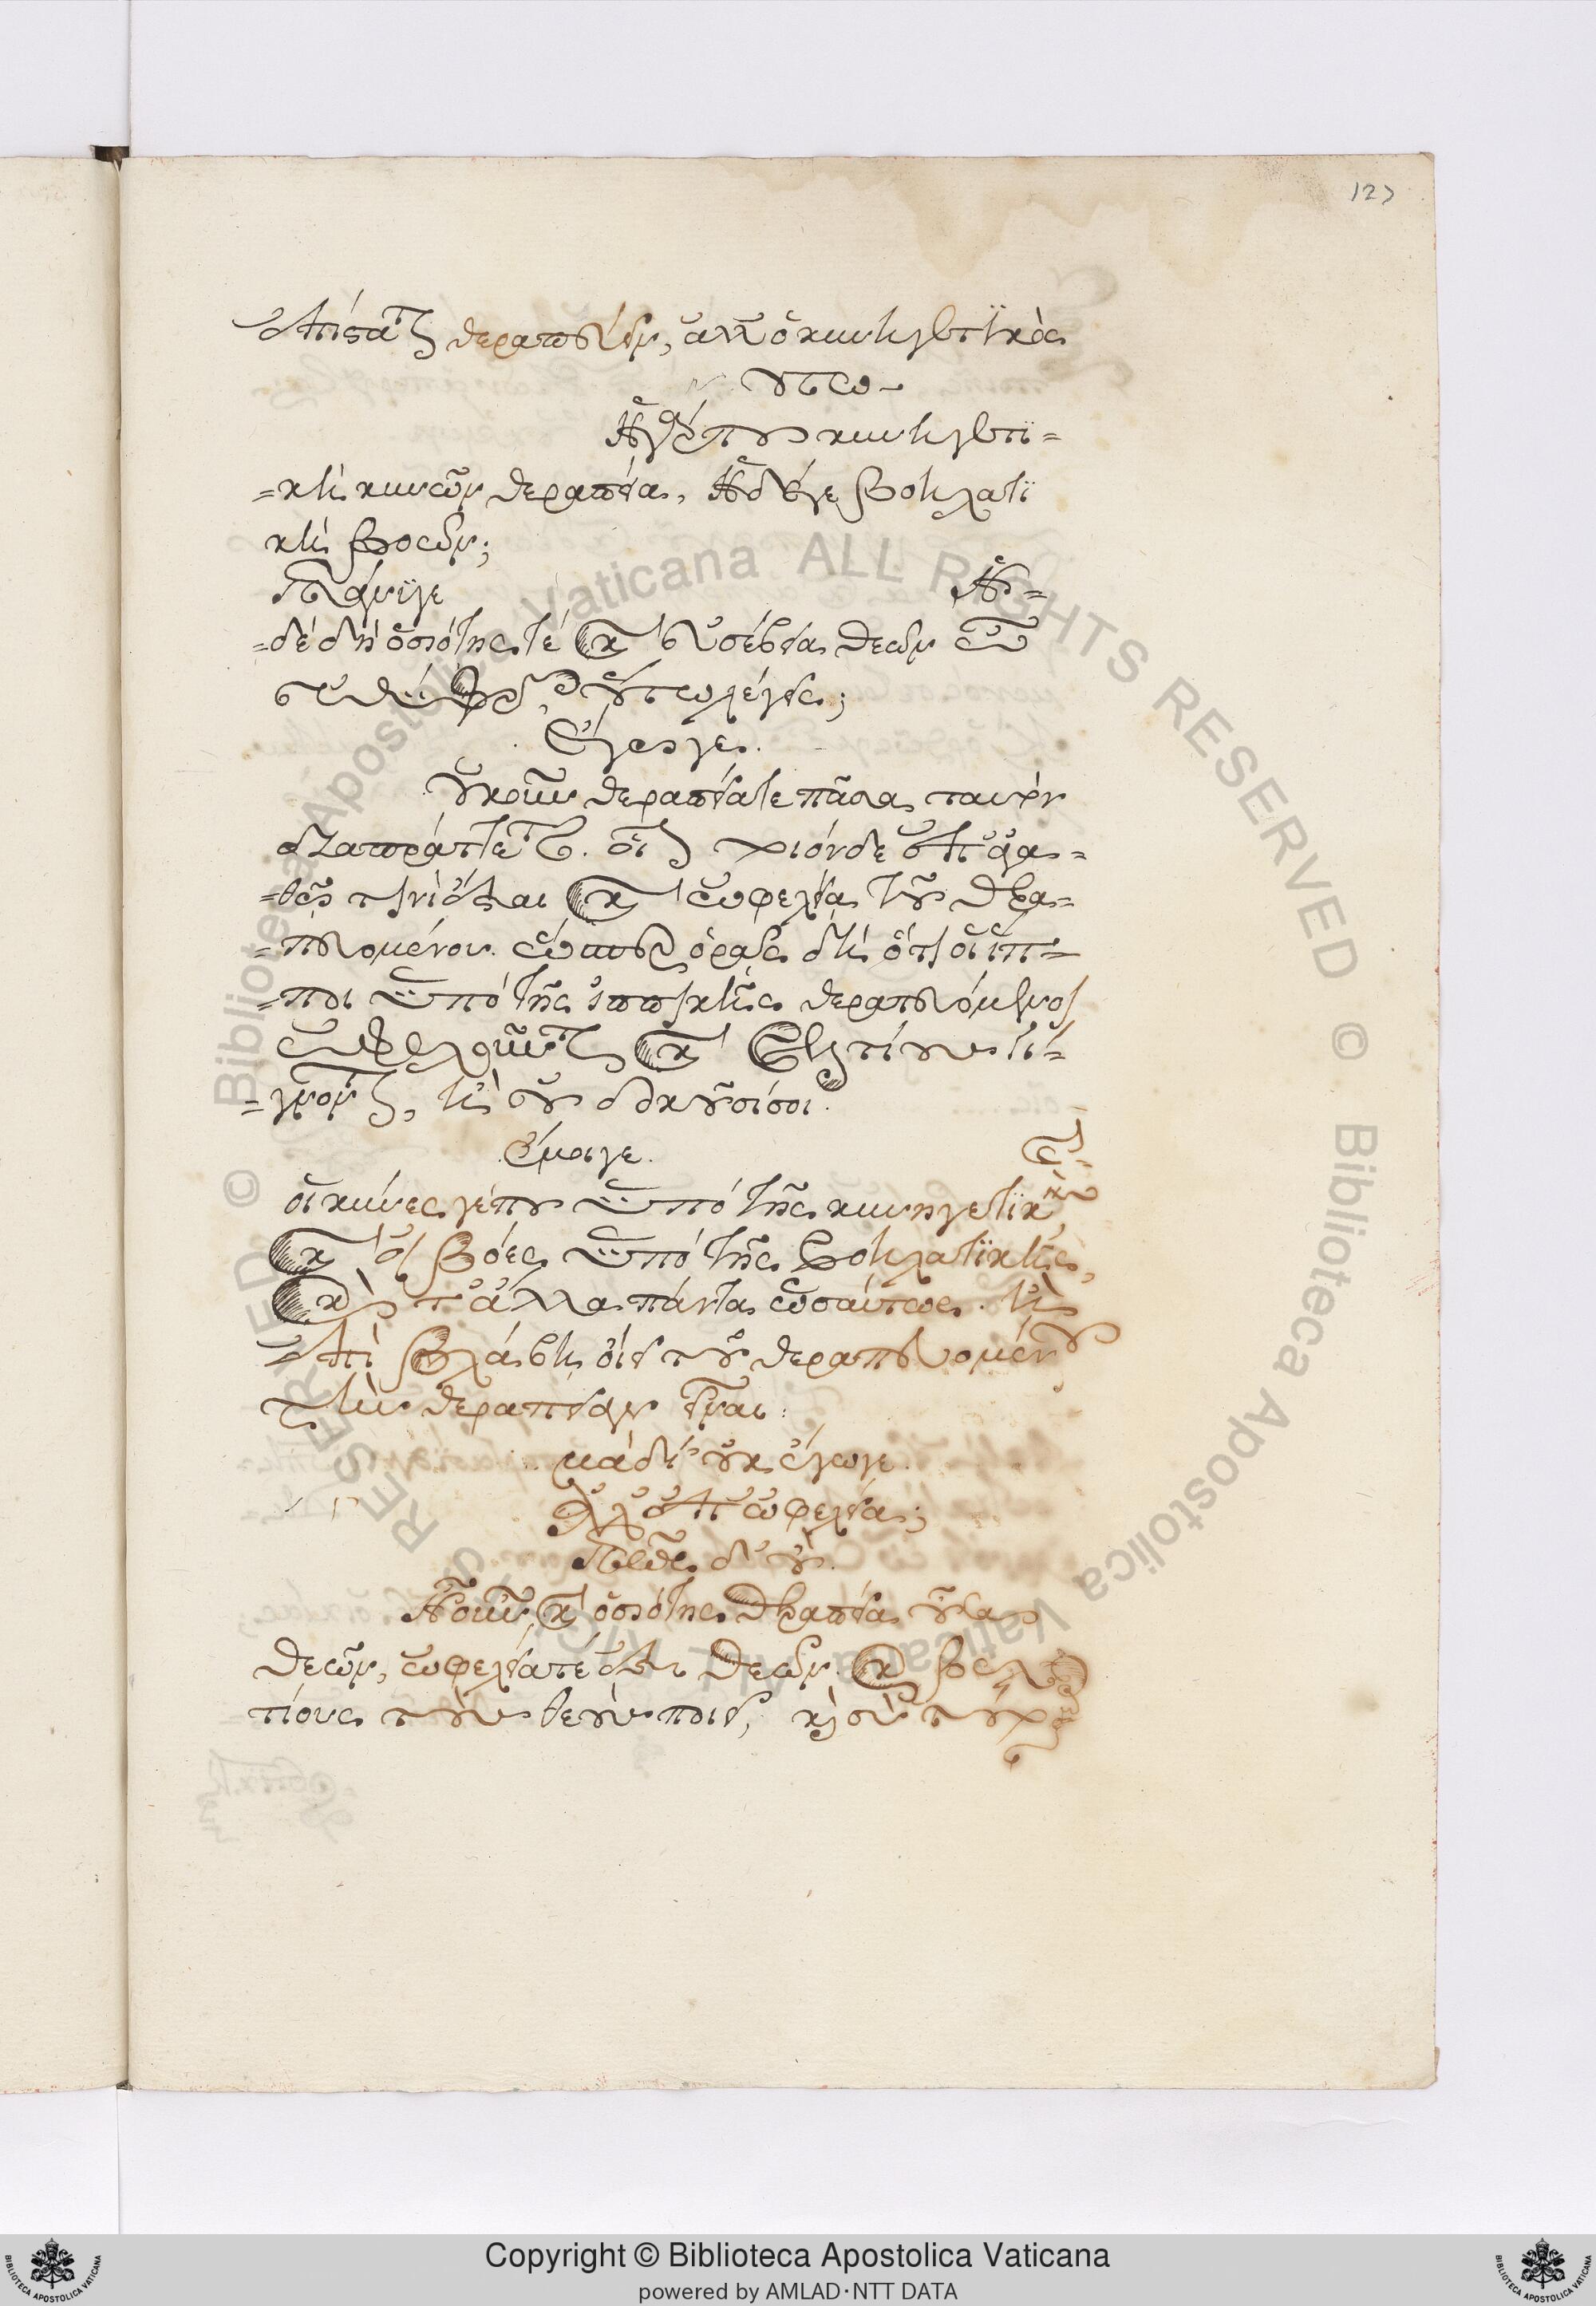 127
ἐπίσταται θεραπεύειν, ἀλλ' ὁ κυνηγετικὸς
οὕτω
ἡ γάρ που κυνηγετι=
=κὴ κυνῶν θεραπεία, ἡ δέ γε βοηλατι
κὴ βοῶν;
πάνυ γε
ἡ=
=δὲ δὴ ὁσιότης τε καὶ εὐσέβεια θεῶν ὦ
λέγεις;
ἔγωγε.
οὐκοῦν θεραπεία τε πᾶσα ταυτὸν
διαπράττεται. οἷον τοιόνδε ἐπ' ἀγα=
=θῷ τινί ἐστι καὶ ὠφελεία τοῦ θερα=
=πευομένου. ὥσπερ ὁρᾷς δὴ ὅτι οἱ ἵπ=
=ποι ὑπὸ τῆς ἱππικῆς θεραπευόμενοι
ὠφελοῦνται καὶ βελτίους γί=
=γνονται, ἢ οὐ δοκοῦσί σοι.
ἔμοιγε.
καὶ
οἱ κύνες γέ που ὑπὸ τῆς κυνηγετικῆς
καὶ οἱ βόες ὑπὸ τῆς βοηλατικῆς,
καὶ τἄλλα πάντα ὡσαύτως. ἢ
ἐπὶ βλάβῃ οἴει τοῦ θεραπευομένου
τὴν θεραπείαν εἶναι
μὰ Δί' οὐκ ἔγωγε.
ἀλλ' ἐπ' ὠφελείᾳ;
πῶς δ' οὔ.
ἦ οὖν καὶ ὁσιότης θεραπεία οὖσα
θεῶν, ὠφελεία τέ ἐστι θεῶν καὶ βελ
τίους τοὺς θεοὺς ποιεῖ, καὶ σὺ
Copyright © Biblioteca Apostolica Vaticana
powered by AMLAD·NTT DATA